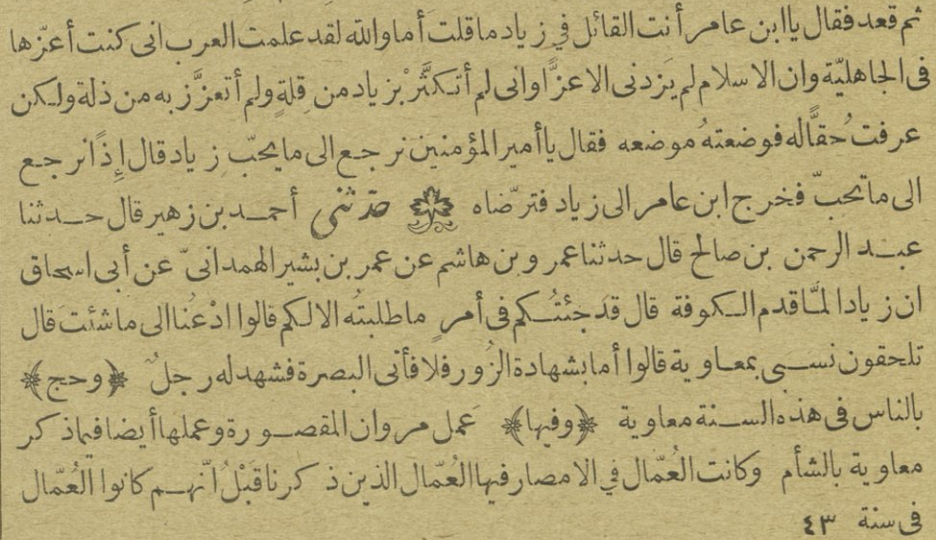 ثم قعد فقال يا ابن عامر أنت القائل في زياد ما قلت أما والله لقد علمت العرب انى كنت أعزّها
فى الجاهليّة وان الاسلام لم يَزدنى الا عزًّا وانى لم أتكثَّر بْزياد من قِلةٍ ولم أتعزَّز به من ذلة ولكن
عرفت حُقًّا له فوضعتهُ موضعه فقال يا أمير المؤمنين نرجع الى ما يحبّ زياد قال إِذًا نرجع
الى ما تحبّ فخرج ابن عامر الى زياد فترضّاه حدّثنى أحمد بن زهير قال حدثنا
عبد الرحمن بن صالح قال حدثنا عمرو بن هاشم عن عمر بن بشير الهمدانىّ عن أبى اسحاق
ان زيادا لمَّا قدم الكوفة قال قد جئتُكم فى أمرٍ ما طلبتُه الا لكم قالوا ادْعُنا الى ما شئتَ قال
تلحقون نسبى بمعاوية قالوا أما بشهادة الزُور فلا فأتى البصرة فشهد له رجلٌ ﴿وحج﴾
بالناس فى هذه السنة معاوية ﴿وفيها﴾ عَمل مروان المقصورة وعملها أيضا فيما ذكر
معاوية بالشأم وكانت العُمّال في الامصار فيها العُمّال الذين ذكرنا قبْلُ أنّهم كانوا العُمّال
فى سنة ٤٣